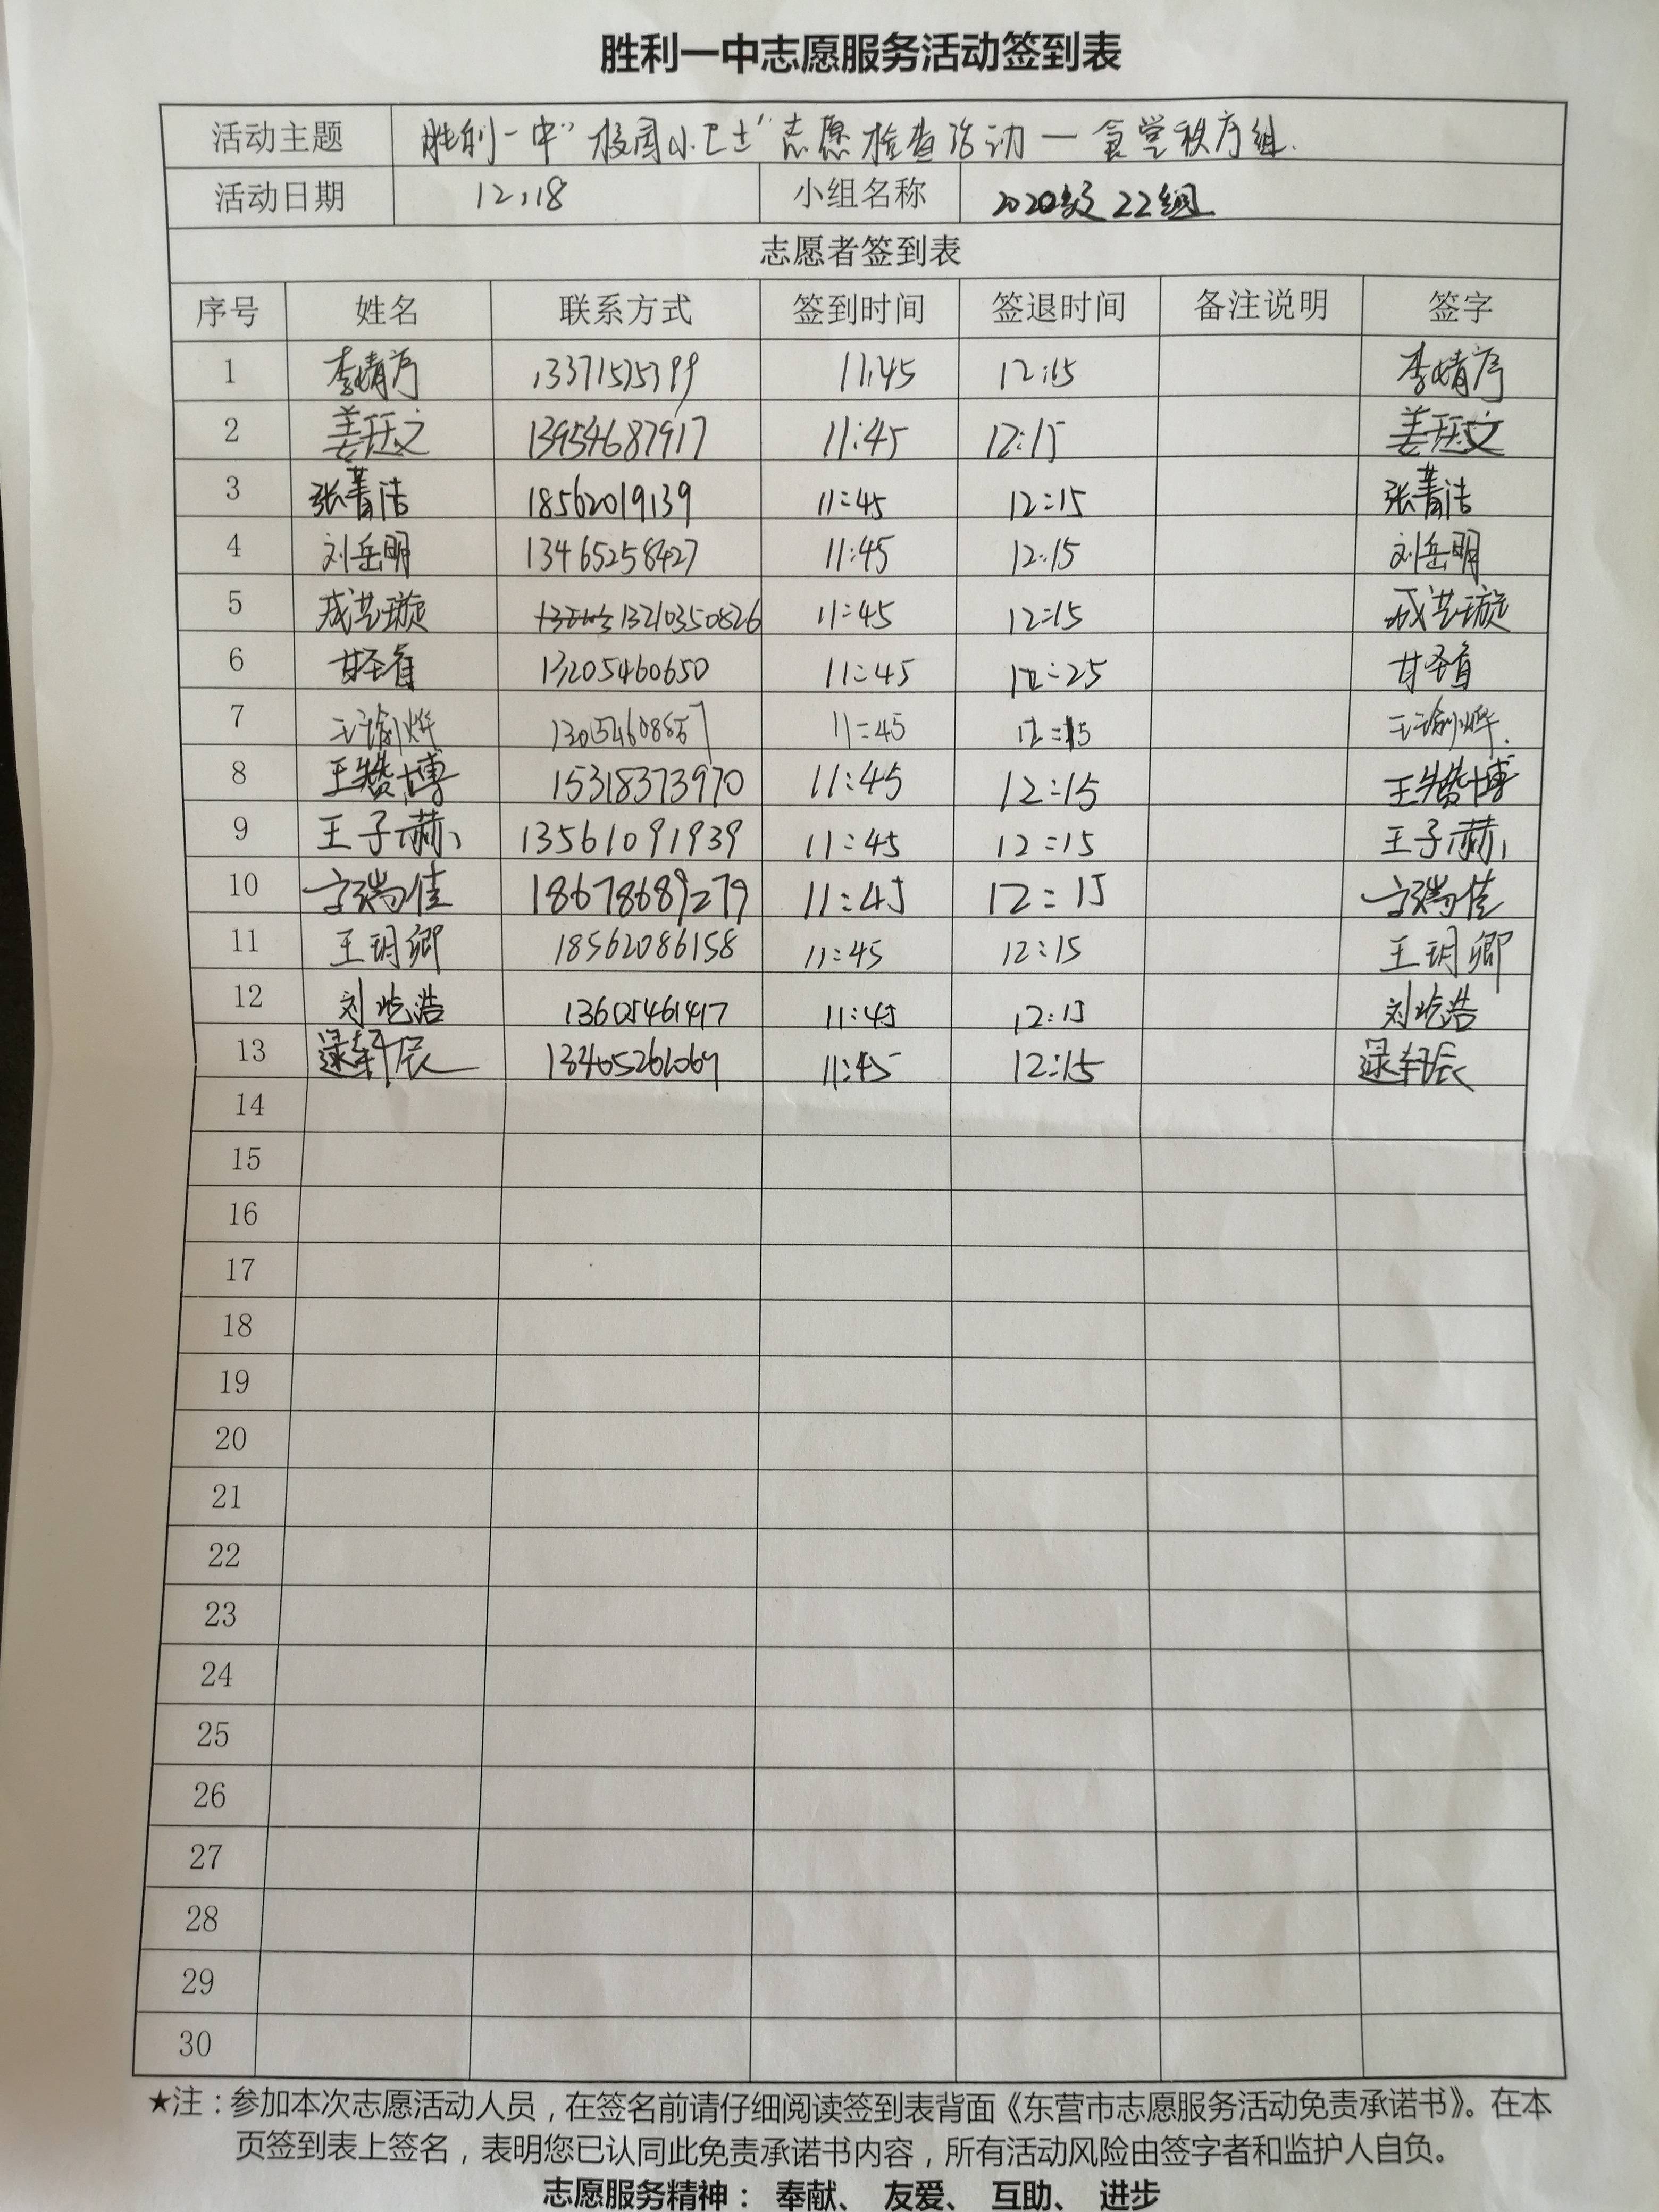 胜利一中志愿服务活动签到表
活动主题 胜利一中"校园小卫士"志愿检查活动—食堂秩序组.
活动日期 12.18 小组名称 2020级22组
志愿者签到表
序号 姓名 联系方式 签到时间 签退时间 备注说明 签字
1 李婧序 13371525399 11:45 12:15 李婧序
2 姜珏文 13954687917 11:45 12:15 姜珏文
3 张菁洁 18562019139 11:45 12:15 张菁洁
4 刘岳明 13465258427 11:45 12:15 刘岳明
5 成艺璇 13210350826 11:45 12:15 成艺璇
6 甘圣育 13205460650 11:45 12:25 甘圣育
7 王瀚烨 13015460885 11:45 12:15 王瀚烨.
8 王赞博 15318373970 11:45 12:15 王赞博
9 王子赫 13561091939 11:45 12:15 王子赫
10 瑞佳 18678689279 11:45 12:15 瑞佳
11 王玥卿 18562086158 11:45 12:15 王玥卿
12 刘屹浩 13605461417 11:45 12:15 刘屹浩
13 逯轩辰 13465261069 11:45 12:15 逯轩辰
14
15
16
17
18
19
20
21
22
23
24
25
26
27
28
29
30
★注：参加本次志愿活动人员，在签名前请仔细阅读签到表背面《东营市志愿服务活动免责承诺书》。在本
页签到表上签名，表明您已认同此免责承诺书内容，所有活动风险由签字者和监护人自负。
志愿服务精神： 奉献、 友爱、 互助、 进步